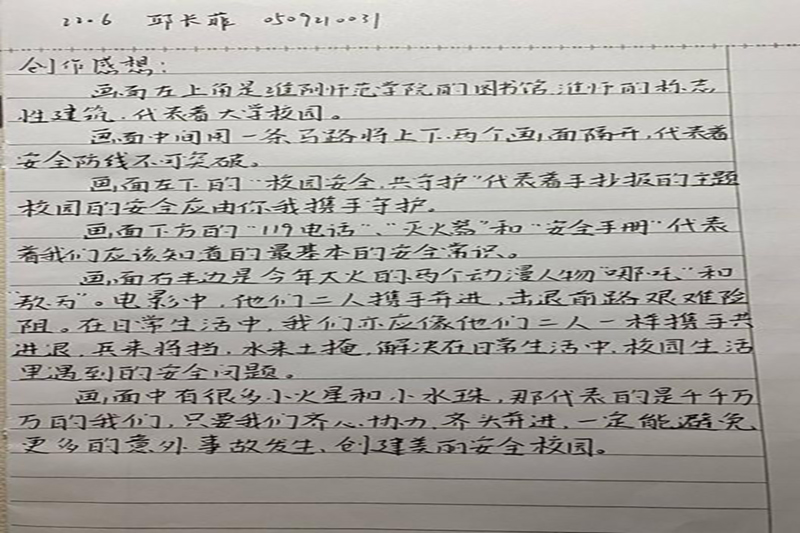 22.6 邱长菲 0509210031
创作感想：
画面左上角是淮阴师范学院的图书馆,淮师的标志
性建筑,代表着大学校园。
画面中间用一条马路将上下两个画面隔开,代表着
安全防线不可突破。
画面左下的"校园安全,共守护"代表着手抄报的主题
校园的安全应由你我携手守护。
画面下方的"119电话"、"灭火器"和"安全手册"代表
着我们应该知道的最基本的安全常识。
画面右半边是今年大火的两个动漫人物"哪吒"和
"敖丙"。电影中,他们二人携手并进,击退前路艰难险
阻。在日常生活中,我们亦应像他们二人一样携手共
进退,兵来将挡,水来土掩,解决在日常生活中,校园生活
里遇到的安全问题。
画面中有很多小火星和小水珠,那代表的是千千万
万的我们,只要我们齐心协力,齐头并进,一定能避免
更多的意外事故发生,创建美丽安全校园。